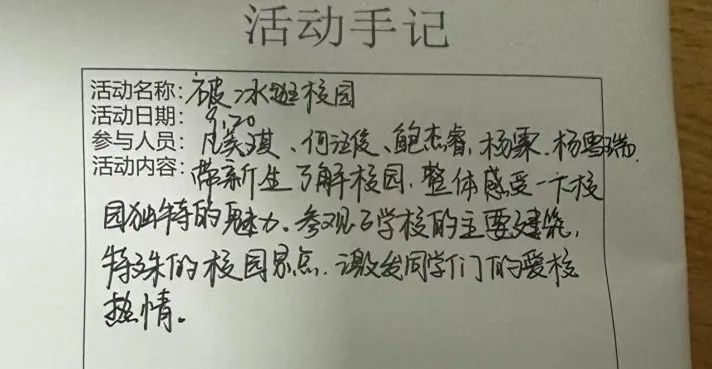 活动手记
活动名称:破冰逛校园
活动日期:9.20
参与人员:凡美琪、何汪俊、鲍杰睿,杨霖、杨雪瑞
活动内容:带新生了解校园,整体感受一下校
园独特的魅力。参观了学校的主要建筑,
特殊的校园景点,激发同学们的爱校
热情。